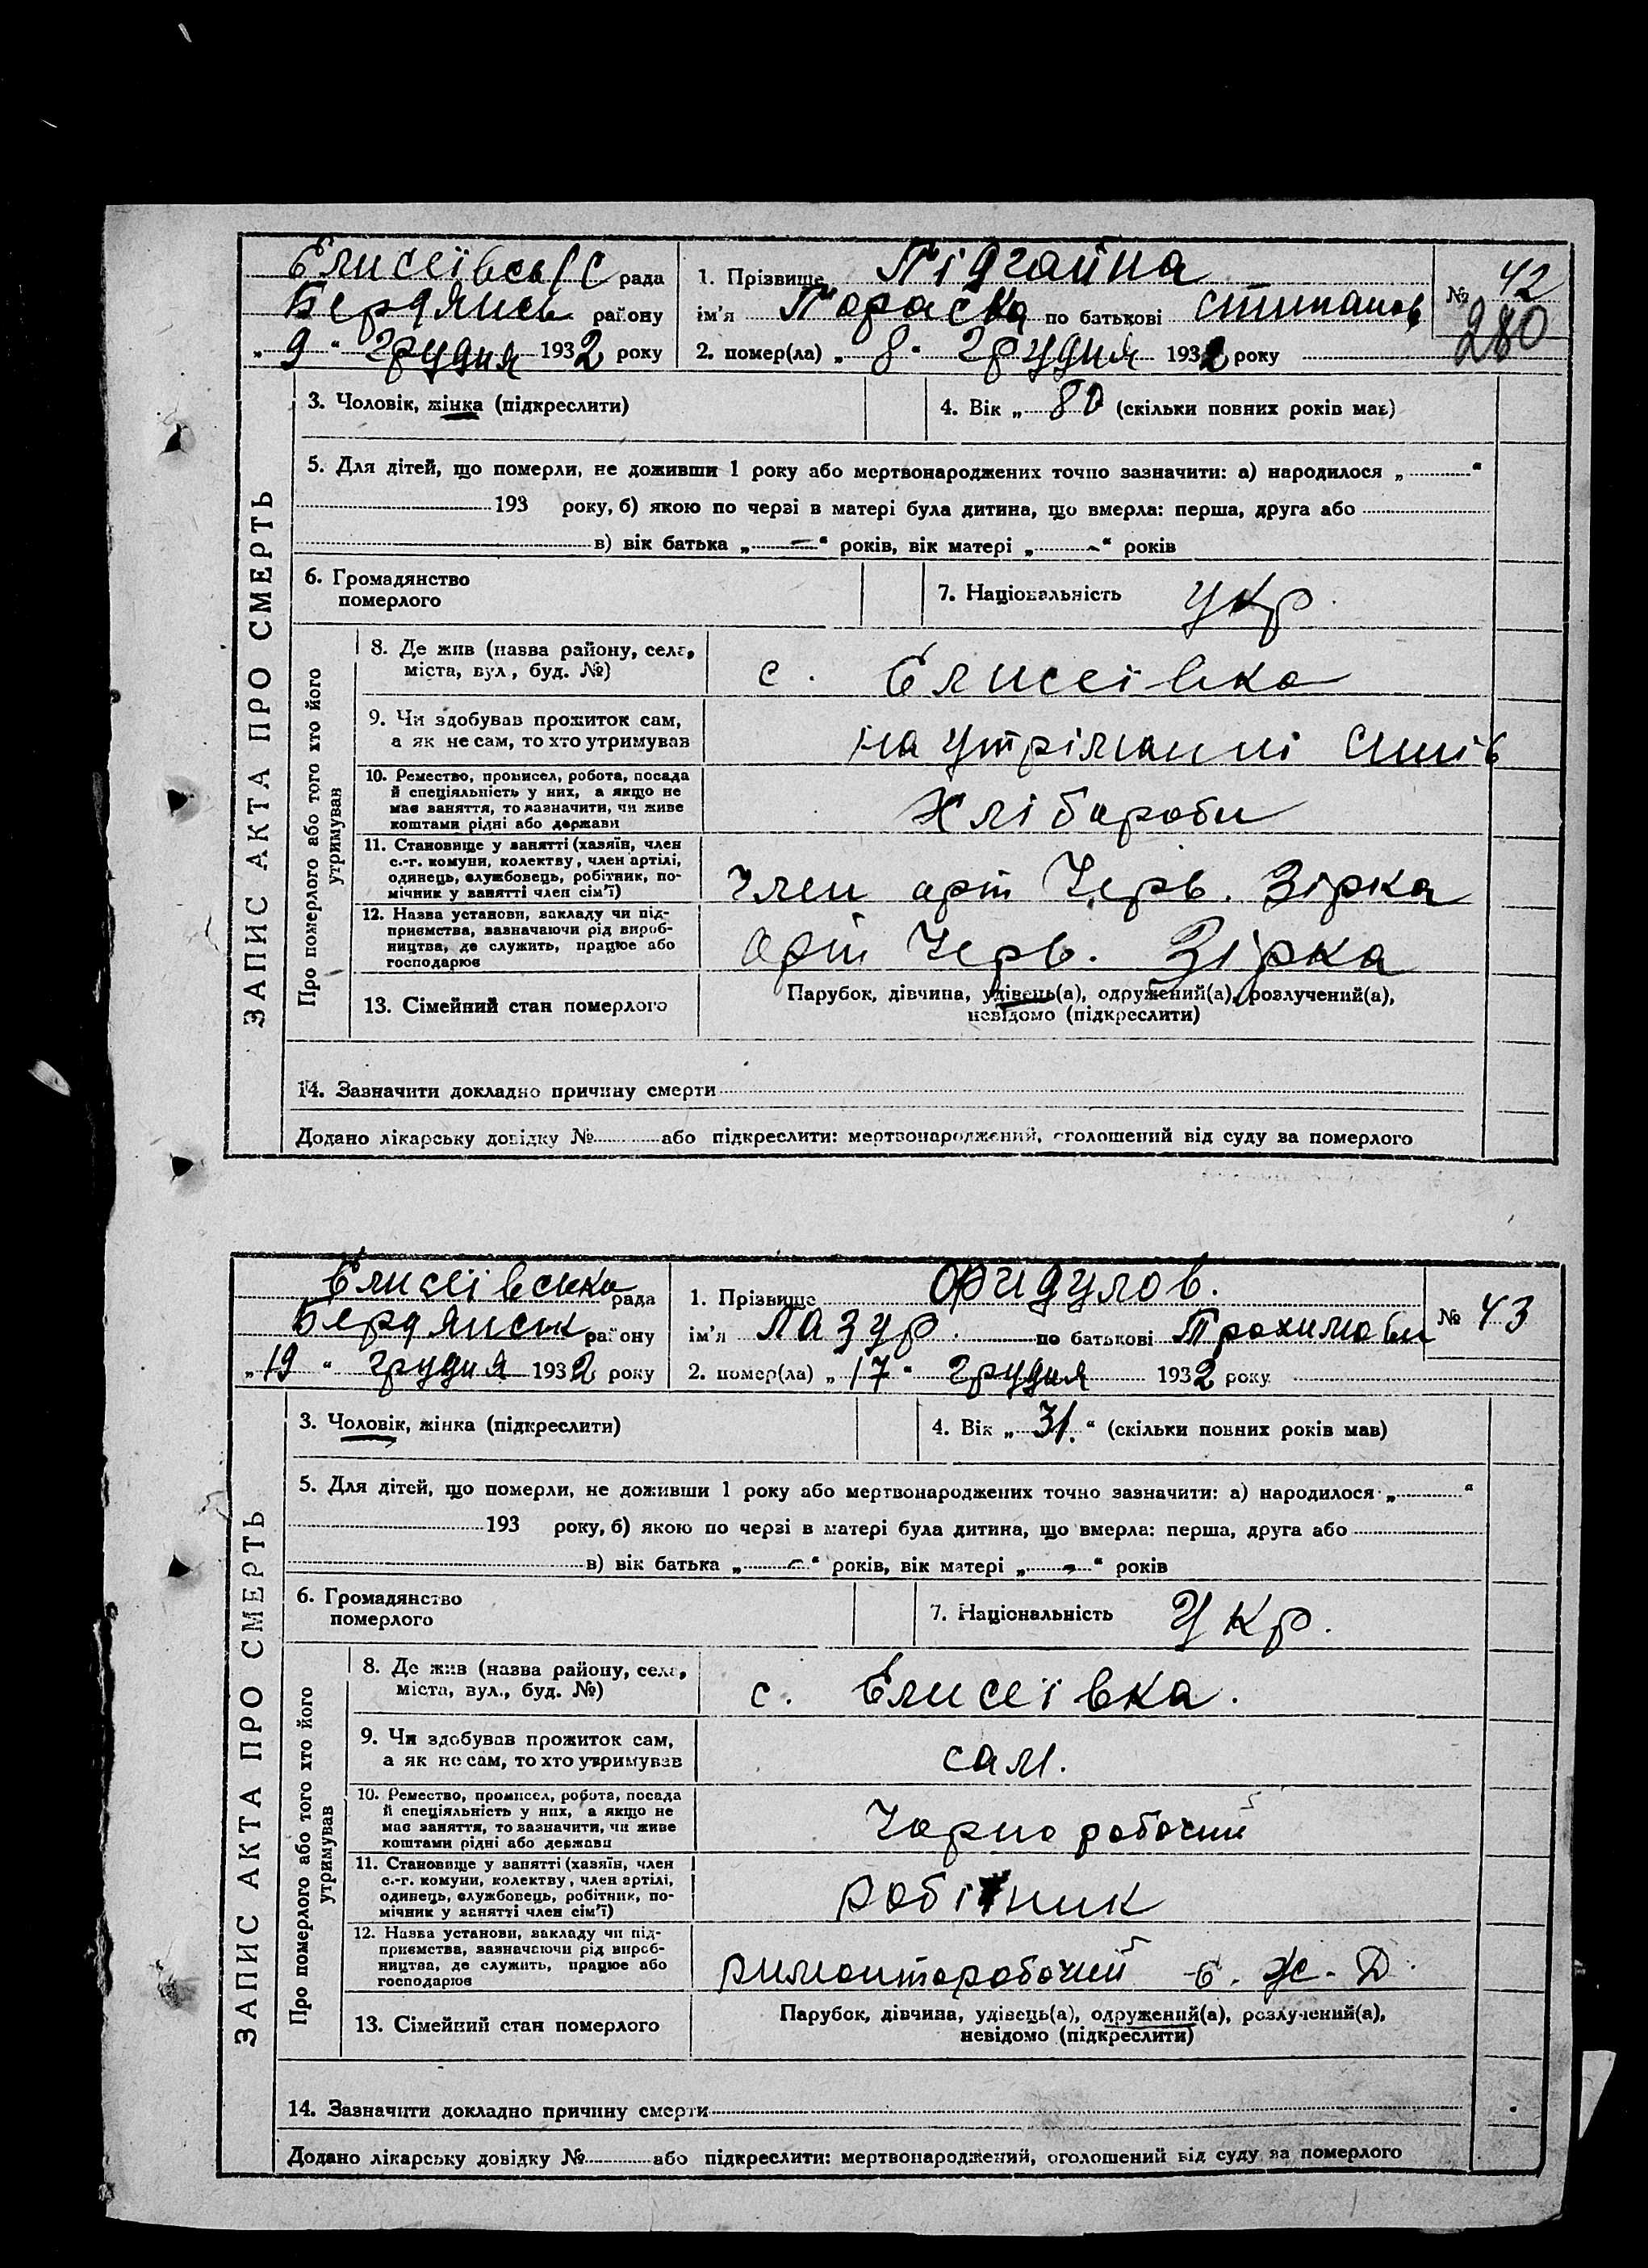 ЗАПИС АКТА ПРО СМЕРТЬ
Єлисеївсь/С рада
Бердянськ району
„9“ Грудня 1932 року
1. Прізвище Підгайна
ім'я Параска по батькові Стипанов
2. помер(ла) „8“ Грудня 1932 року
№ 42
280
3. Чоловік, жінка (підкреслити)
4. Вік „80 (скільки повних років мав)
5. Для дітей, що померли, не доживши 1 року або мертвонароджених точно зазначити: а) народилося „ “
193 року, б) якою по черзі в матері була дитина, що вмерла: перша, друга або
в) вік батька „—“ років, вік матері „-“ років
6. Громадянство
померлого
7. Національність укр.
Про померлого або того хто його
утримував
8. Де жив (назва району, села,
міста, вул., буд. №)
с. Єлисеівка
9. Чи здобував прожиток сам,
а як не сам, то хто утримував
на утріманні синів
10. Ремество, промисел, робота, посада
й спеціяльність у них, а якщо не
має заняття, то зазначити, чи живе
коштами рідні або держави
Хлібароби
11. Становище у занятті (хазяїн, член
с.-г. комуни, колектву, член артілі,
одинець, службовець, робітник, по-
мічник у занятті член сім'ї)
Член арт Черв. Зірка
12. Назва установи, закладу чи під-
приємства, зазначаючи рід вироб-
ництва, де служить, працює або
господарює
Арт Черв. Зірка
13. Сімейний стан померлого
Парубок, дівчина, удівець(а), одружений(а), розлучений(а),
невідомо (підкреслити)
14. Зазначити докладно причину смерти
Додано лікарську довідку № або підкреслити: мертвонароджений, оголошений від суду за померлого
ЗАПИС АКТА ПРО СМЕРТЬ
Єлисеівська рада
Бердянськ району
„19“ грудня 1932 року
1. Прізвище Фидулов.
ім'я Лазур. по батькові Трохимови
2. помер(ла) „17“ Грудня 1932 року
№ 43
3. Чоловік, жінка (підкреслити)
4. Вік „31.“ (скільки повних років мав)
5. Для дітей, що померли, не доживши 1 року або мертвонароджених точно зазначити: а) народилося „ “
193 року, б) якою по черзі в матері була дитина, що вмерла: перша, друга або
в) вік батька „-“ років, вік матері „-“ років
6. Громадянство
померлого
7. Національність Укр.
Про померлого або того хто його
утримував
8. Де жив (назва району, села,
міста, вул., буд. №)
с. Єлисеівка.
9. Чи здобував прожиток сам,
а як не сам, то хто утримував
сам.
10. Ремество, промисел, робота, посада
й спеціяльність у них, а якщо не
має заняття, то зазначити, чи живе
коштами рідні або держави
Чорно рабочий
11. Становище у занятті (хазяїн, член
с.-г. комуни, колектву, член артілі,
одинець, службовець, робітник, по-
мічник у занятті член сім'ї)
робітник
12. Назва установи, закладу чи під-
приємства, зазначаючи рід вироб-
ництва, де служить, працює або
господарює
римонтарабочий б. Ж. Д.
13. Сімейний стан померлого
Парубок, дівчина, удівець(а), одружений(а), розлучений(а),
невідомо (підкреслити)
14. Зазначити докладно причину смерти
Додано лікарську довідку № або підкреслити: мертвонароджений, оголошений від суду за померлого